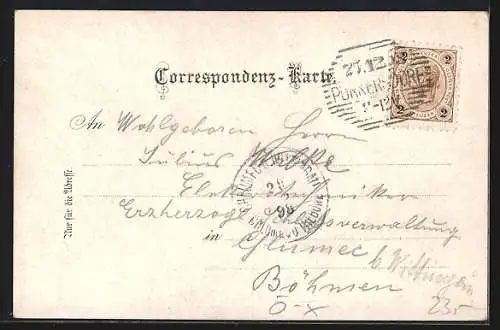 Correspondenz-Karte
27.12.
2 2
2 2
An Wohlgeboren Herrn
Julius
Elektrotechniker
Erzherzogl.
in Chlumec b. Wittingau
Böhmen
Ö-X
235
98
Nur für die Adresse